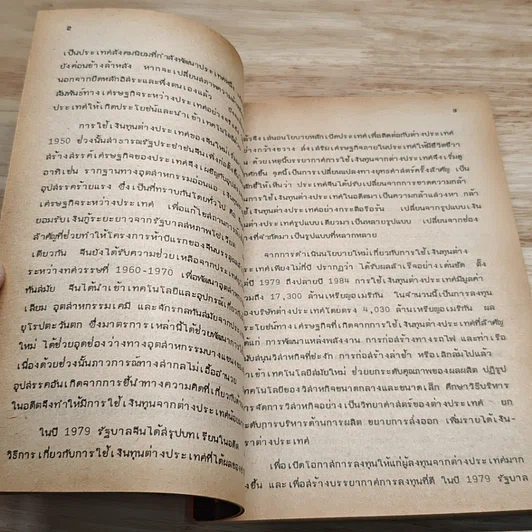 ๕
เป็นประเทศสังคมนิยมที่กำลังพัฒนาประเทศ
ยังค่อนข้างล้าหลัง หากจะเปลี่ยนสภาพความล้า
นอกจากยึดหลักอิสระและพึ่งตนเองแล้ว
สัมพันธ์ทางเศรษฐกิจระหว่างประเทศอย่าง
ประเทศให้เกิดประโยชน์และนำเข้าเทคโนโลยี
การใช้เงินทุนต่างประเทศของจีนใหม่
1950 ช่วงนั้นสาธารณรัฐประชาชนจีนเพิ่งก่อตั้ง
สร้างสรรค์เศรษฐกิจของประเทศจึงเผชิญกับอุปสรรค
อาทิเช่น รากฐานทางอุตสาหกรรมอ่อนแอ
อุปสรรคร้ายแรง ซึ่งเป็นที่ทราบกันโดยทั่วไป คือ
เศรษฐกิจระหว่างประเทศ เพื่อแก้ไขสถานการณ์
ยอมรับเงินกู้ระยะยาวจากรัฐบาลสหภาพโซเวียต
สำคัญที่ช่วยทำให้โครงการห้าปีแรกของจีนบรรลุผล
เดียวกัน จีนยังได้รับความช่วยเหลือจากประเทศ
ระหว่างทศวรรษที่ 1960-1970 เพื่อพัฒนาอุตสาหกรรม
ทันสมัย จีนได้นำเข้าเทคโนโลยีและอุปกรณ์เกี่ยวกับ
เลียม อุตสาหกรรมเคมี และจักรกลทันสมัยจากประเทศ
ยุโรปตะวันตก ซึ่งมาตรการเหล่านี้ได้ช่วยพัฒนาการ
ใหม่ ได้ช่วยอุดช่องว่างทางอุตสาหกรรมบางแขนง
เนื่องด้วยช่วงนั้นภาวการณ์ทางสากลไม่เอื้ออำนวย
อุปสรรคอันเกิดจากการชี้นำทางความคิดที่เกี่ยวกับ
ในอดีตจึงทำให้มีการใช้เงินทุนจากต่างประเทศน้อย
ในปี 1979 รัฐบาลจีนได้สรุปบทเรียนในอดีต
วิธีการเกี่ยวกับการใช้เงินทุนต่างประเทศที่ได้ผลของ
แล้วจึงเสนอนโยบายหลักเปิดประเทศเพื่อติดต่อกับต่างประเทศ
อย่างกว้างขวาง ส่งเสริมเศรษฐกิจภายในประเทศให้มีชีวิตชีวา
ด้วยเหตุนี้บรรยากาศการใช้เงินทุนจากต่างประเทศจึงเริ่มคู
คักขึ้น จุดนี้เป็นการเปลี่ยนแปลงทางยุทธศาสตร์ครั้งสำคัญ เป็น
ชี้ให้เห็นว่า ประเทศจีนได้ปรับเปลี่ยนจากการขาดความกล้า
เงินทุนจากต่างประเทศในอดีตมาเป็นความกล้าแสวงหา กล้า
เงินทุนต่างประเทศอย่างกระตือรือร้น เปลี่ยนจากรูปแบบ
เงินทุนจากต่างประเทศรูปแบบเดียวมาเป็นหลายรูปแบบ เปลี่ยนจากช่อง
ที่จำกัดมาเป็นรูปแบบที่หลากหลาย
จากการดำเนินนโยบายใหม่เกี่ยวกับการใช้เงินทุนต่าง
ประเทศเพียงไม่กี่ปี ปรากฏว่า ได้รับผลสำเร็จอย่างเด่นชัด ตั้ง
ปี 1979 ถึงปลายปี 1984 การใช้เงินทุนต่างประเทศมีมูลค่า
รวมถึง 17,300 ล้านเหรียญอเมริกัน ในจำนวนนี้เป็นการลงทุน
ของบริษัทต่างประเทศโดยตรง 4,030 ล้านเหรียญอเมริกัน ผล
ประโยชน์ทางเศรษฐกิจที่เกิดจากการใช้เงินทุนต่างประเทศที่สำคัญ
ได้แก่ การพัฒนาแหล่งพลังงาน การก่อสร้างทางรถไฟ และท่าเรือ
สนับสนุนวิสาหกิจที่ชะงัก การก่อสร้างล่าช้า หรือเลิกล้มไปแล้ว
เทคโนโลยีสมัยใหม่ ช่วยยกระดับคุณภาพของผลผลิต ปฏิรูป
เทคโนโลยีของวิสาหกิจขนาดกลางและขนาดเล็ก ศึกษาวิธีบริหาร
การจัดการวิสาหกิจอย่างเป็นวิทยาศาสตร์ของต่างประเทศ ยก
ระดับการบริหารด้านการผลิต ขยายการส่งออก เพิ่มรายได้เงิน-
ตราต่างประเทศ
เพื่อเปิดโอกาสการลงทุนให้แก่ผู้ลงทุนจากต่างประเทศมาก
ยิ่งขึ้น และเพื่อสร้างบรรยากาศการลงทุนที่ดี ในปี 1979 รัฐบาล